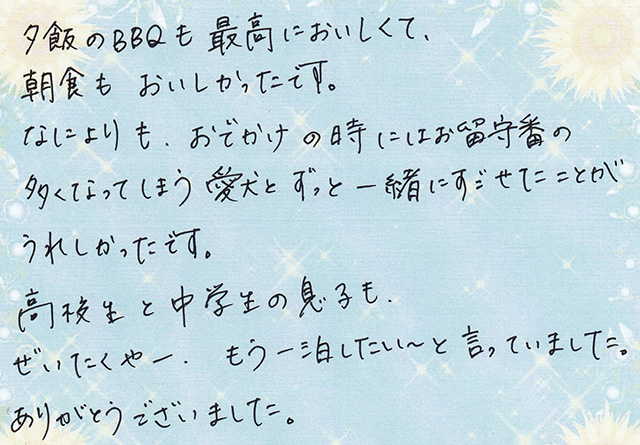 夕飯のBBQも最高においしくて、
朝食も おいしかったです。
なによりも、おでかけの時にはお留守番の
多くなってしまう愛犬とずっと一緒にすごせたことが
うれしかったです。
高校生と中学生の息子も、
ぜいたくやー、もう一泊したい〜と言っていました。
ありがとうございました。